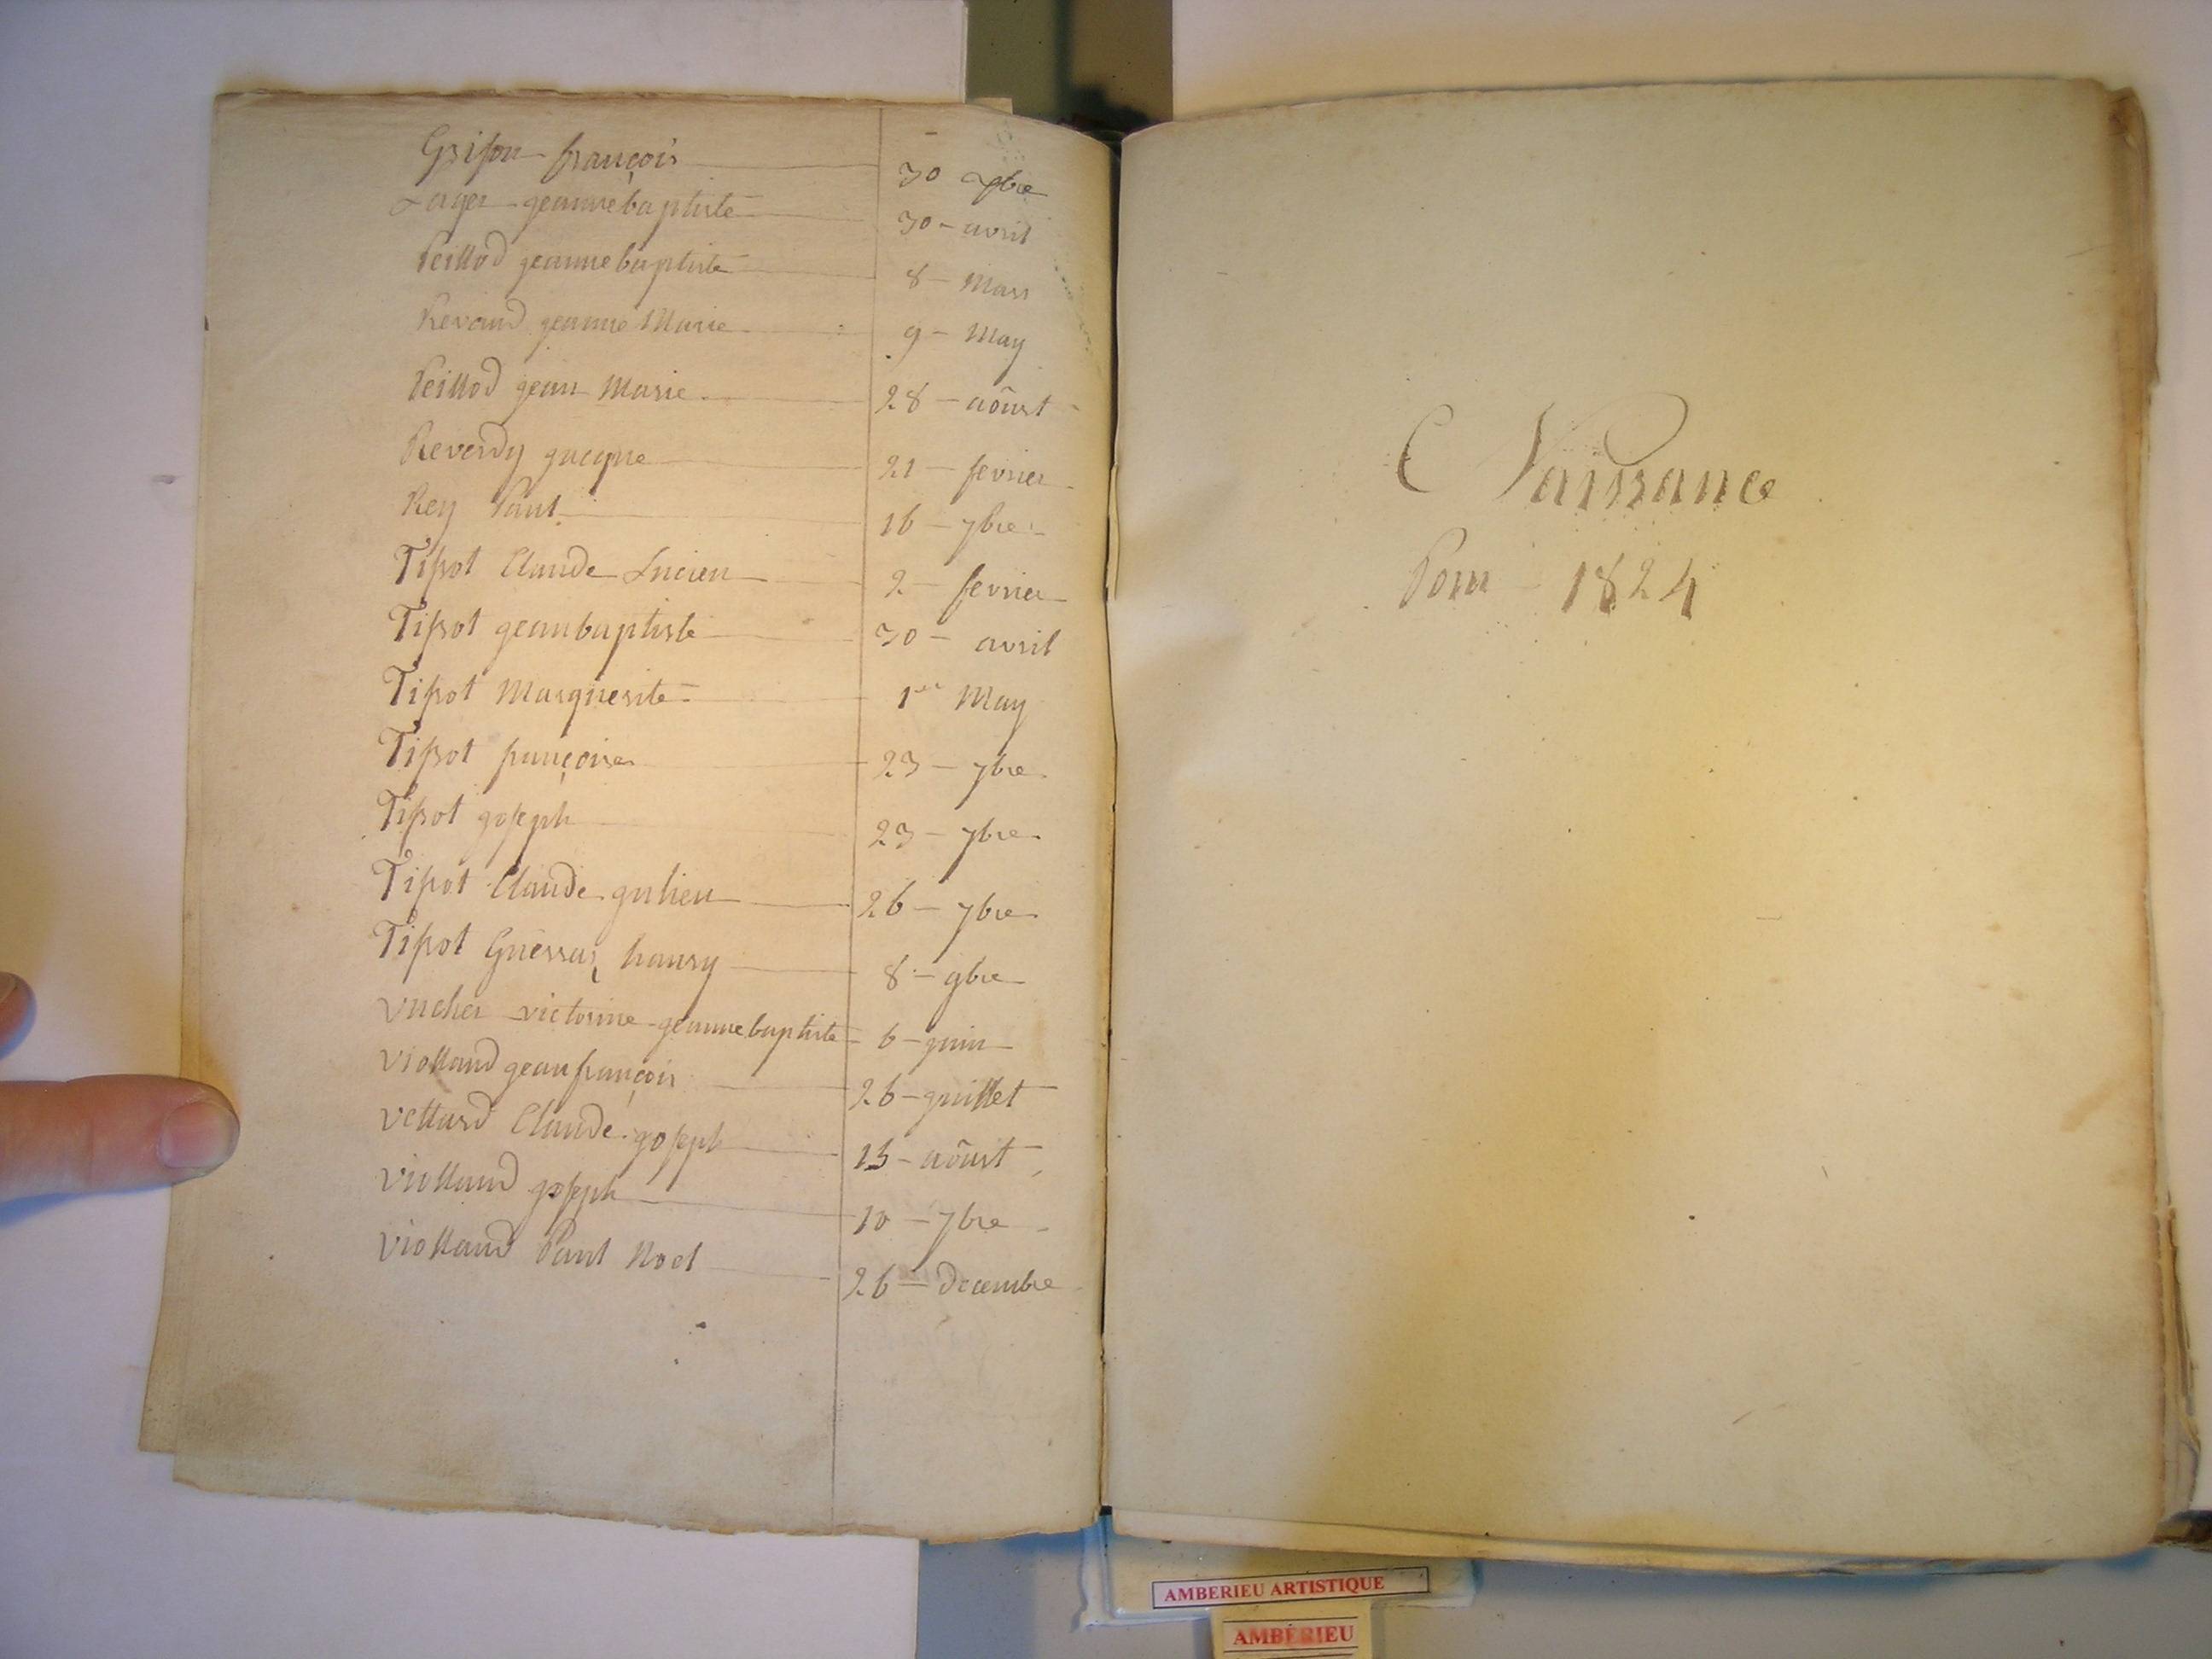 Grison françois 30 7bre
Lager geanne baptiste 30 - avril
Peillod geanne baptiste 8 - Mars
Revaud geanne Marie 9 - May
Peillod gean Marie 28 - aôust
Reverdy gacque 21 - fevrier
Rey Paul 16 - 7bre
Tissot Claude Lucien 2 - fevrier
Tissot geanbaptiste 30 - avril
Tissot Marguerite 1er May
Tissot françoise 23 - 7bre
Tissot goseph 23 - 7bre
Tissot Claude gulien 26 - 7bre
Tissot hanry 8 - 9bre
Vucher victorine geanne baptiste 6 - guin
Violland gean françois 26 - guillet
Vettard Claude goseph 15 - aôust
Violland goseph 10 - 7bre
Violland Paul Noel 26 - decembre
Naissance
Pour - 1824
AMBERIEU ARTISTIQUE
AMBÉRIEU